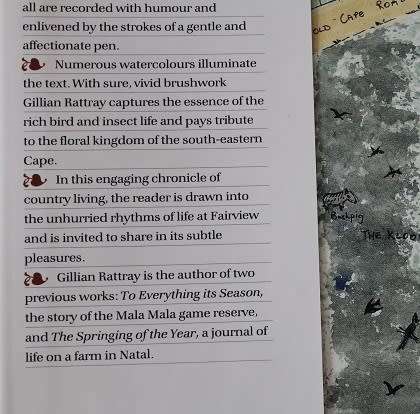 all are recorded with humour and
enlivened by the strokes of a gentle and
affectionate pen.
Numerous watercolours illuminate
the text. With sure, vivid brushwork
Gillian Rattray captures the essence of the
rich bird and insect life and pays tribute
to the floral kingdom of the south-eastern
Cape.
In this engaging chronicle of
country living, the reader is drawn into
the unhurried rhythms of life at Fairview
and is invited to share in its subtle
pleasures.
Gillian Rattray is the author of two
previous works: To Everything its Season,
the story of the Mala Mala game reserve,
and The Springing of the Year, a journal of
life on a farm in Natal.
OLD CAPE ROAD
Bushpig
THE KLOOF